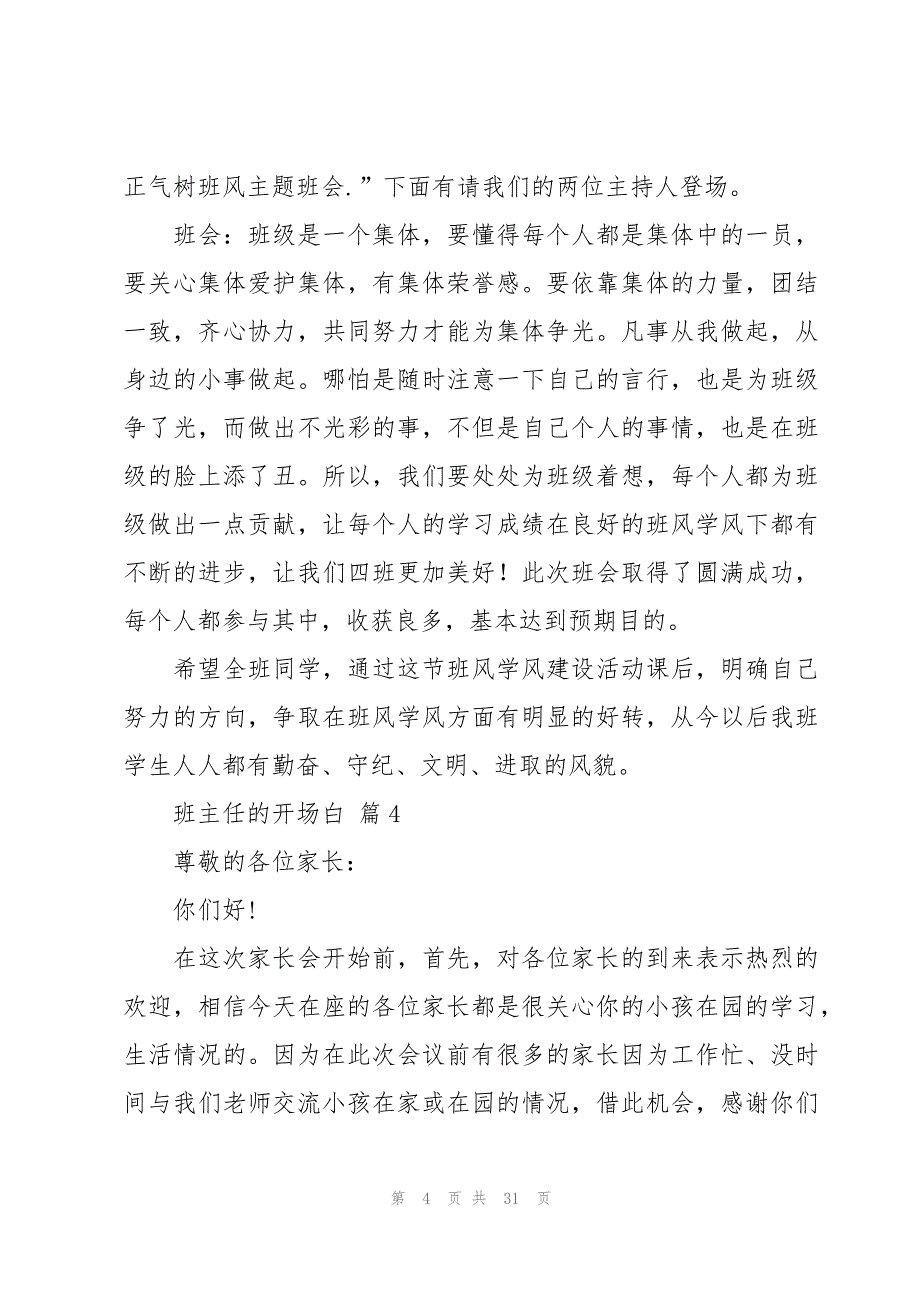 正气树班风主题班会.”下面有请我们的两位主持人登场。
班会：班级是一个集体，要懂得每个人都是集体中的一员，
要关心集体爱护集体，有集体荣誉感。要依靠集体的力量，团结
一致，齐心协力，共同努力才能为集体争光。凡事从我做起，从
身边的小事做起。哪怕是随时注意一下自己的言行，也是为班级
争了光，而做出不光彩的事，不但是自己个人的事情，也是在班
级的脸上添了丑。所以，我们要处处为班级着想，每个人都为班
级做出一点贡献，让每个人的学习成绩在良好的班风学风下都有
不断的进步，让我们四班更加美好！此次班会取得了圆满成功，
每个人都参与其中，收获良多，基本达到预期目的。
希望全班同学，通过这节班风学风建设活动课后，明确自己
努力的方向，争取在班风学风方面有明显的好转，从今以后我班
学生人人都有勤奋、守纪、文明、进取的风貌。
班主任的开场白 篇4
尊敬的各位家长：
你们好!
在这次家长会开始前，首先，对各位家长的到来表示热烈的
欢迎，相信今天在座的各位家长都是很关心你的小孩在园的学习，
生活情况的。因为在此次会议前有很多的家长因为工作忙、没时
间与我们老师交流小孩在家或在园的情况，借此机会，感谢你们
第 4 页 共 31 页